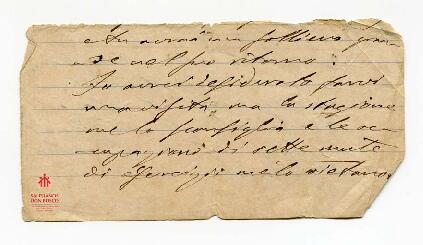 e tu avrai un sollievo gran
de nel suo ritorno.
Io avrei desiderato farvi
una visita, ma la stagione
me lo sconsiglia e le oc
cupazioni di sette mute
di esercizi me lo vietano.
SALESIANOS
DON BOSCO